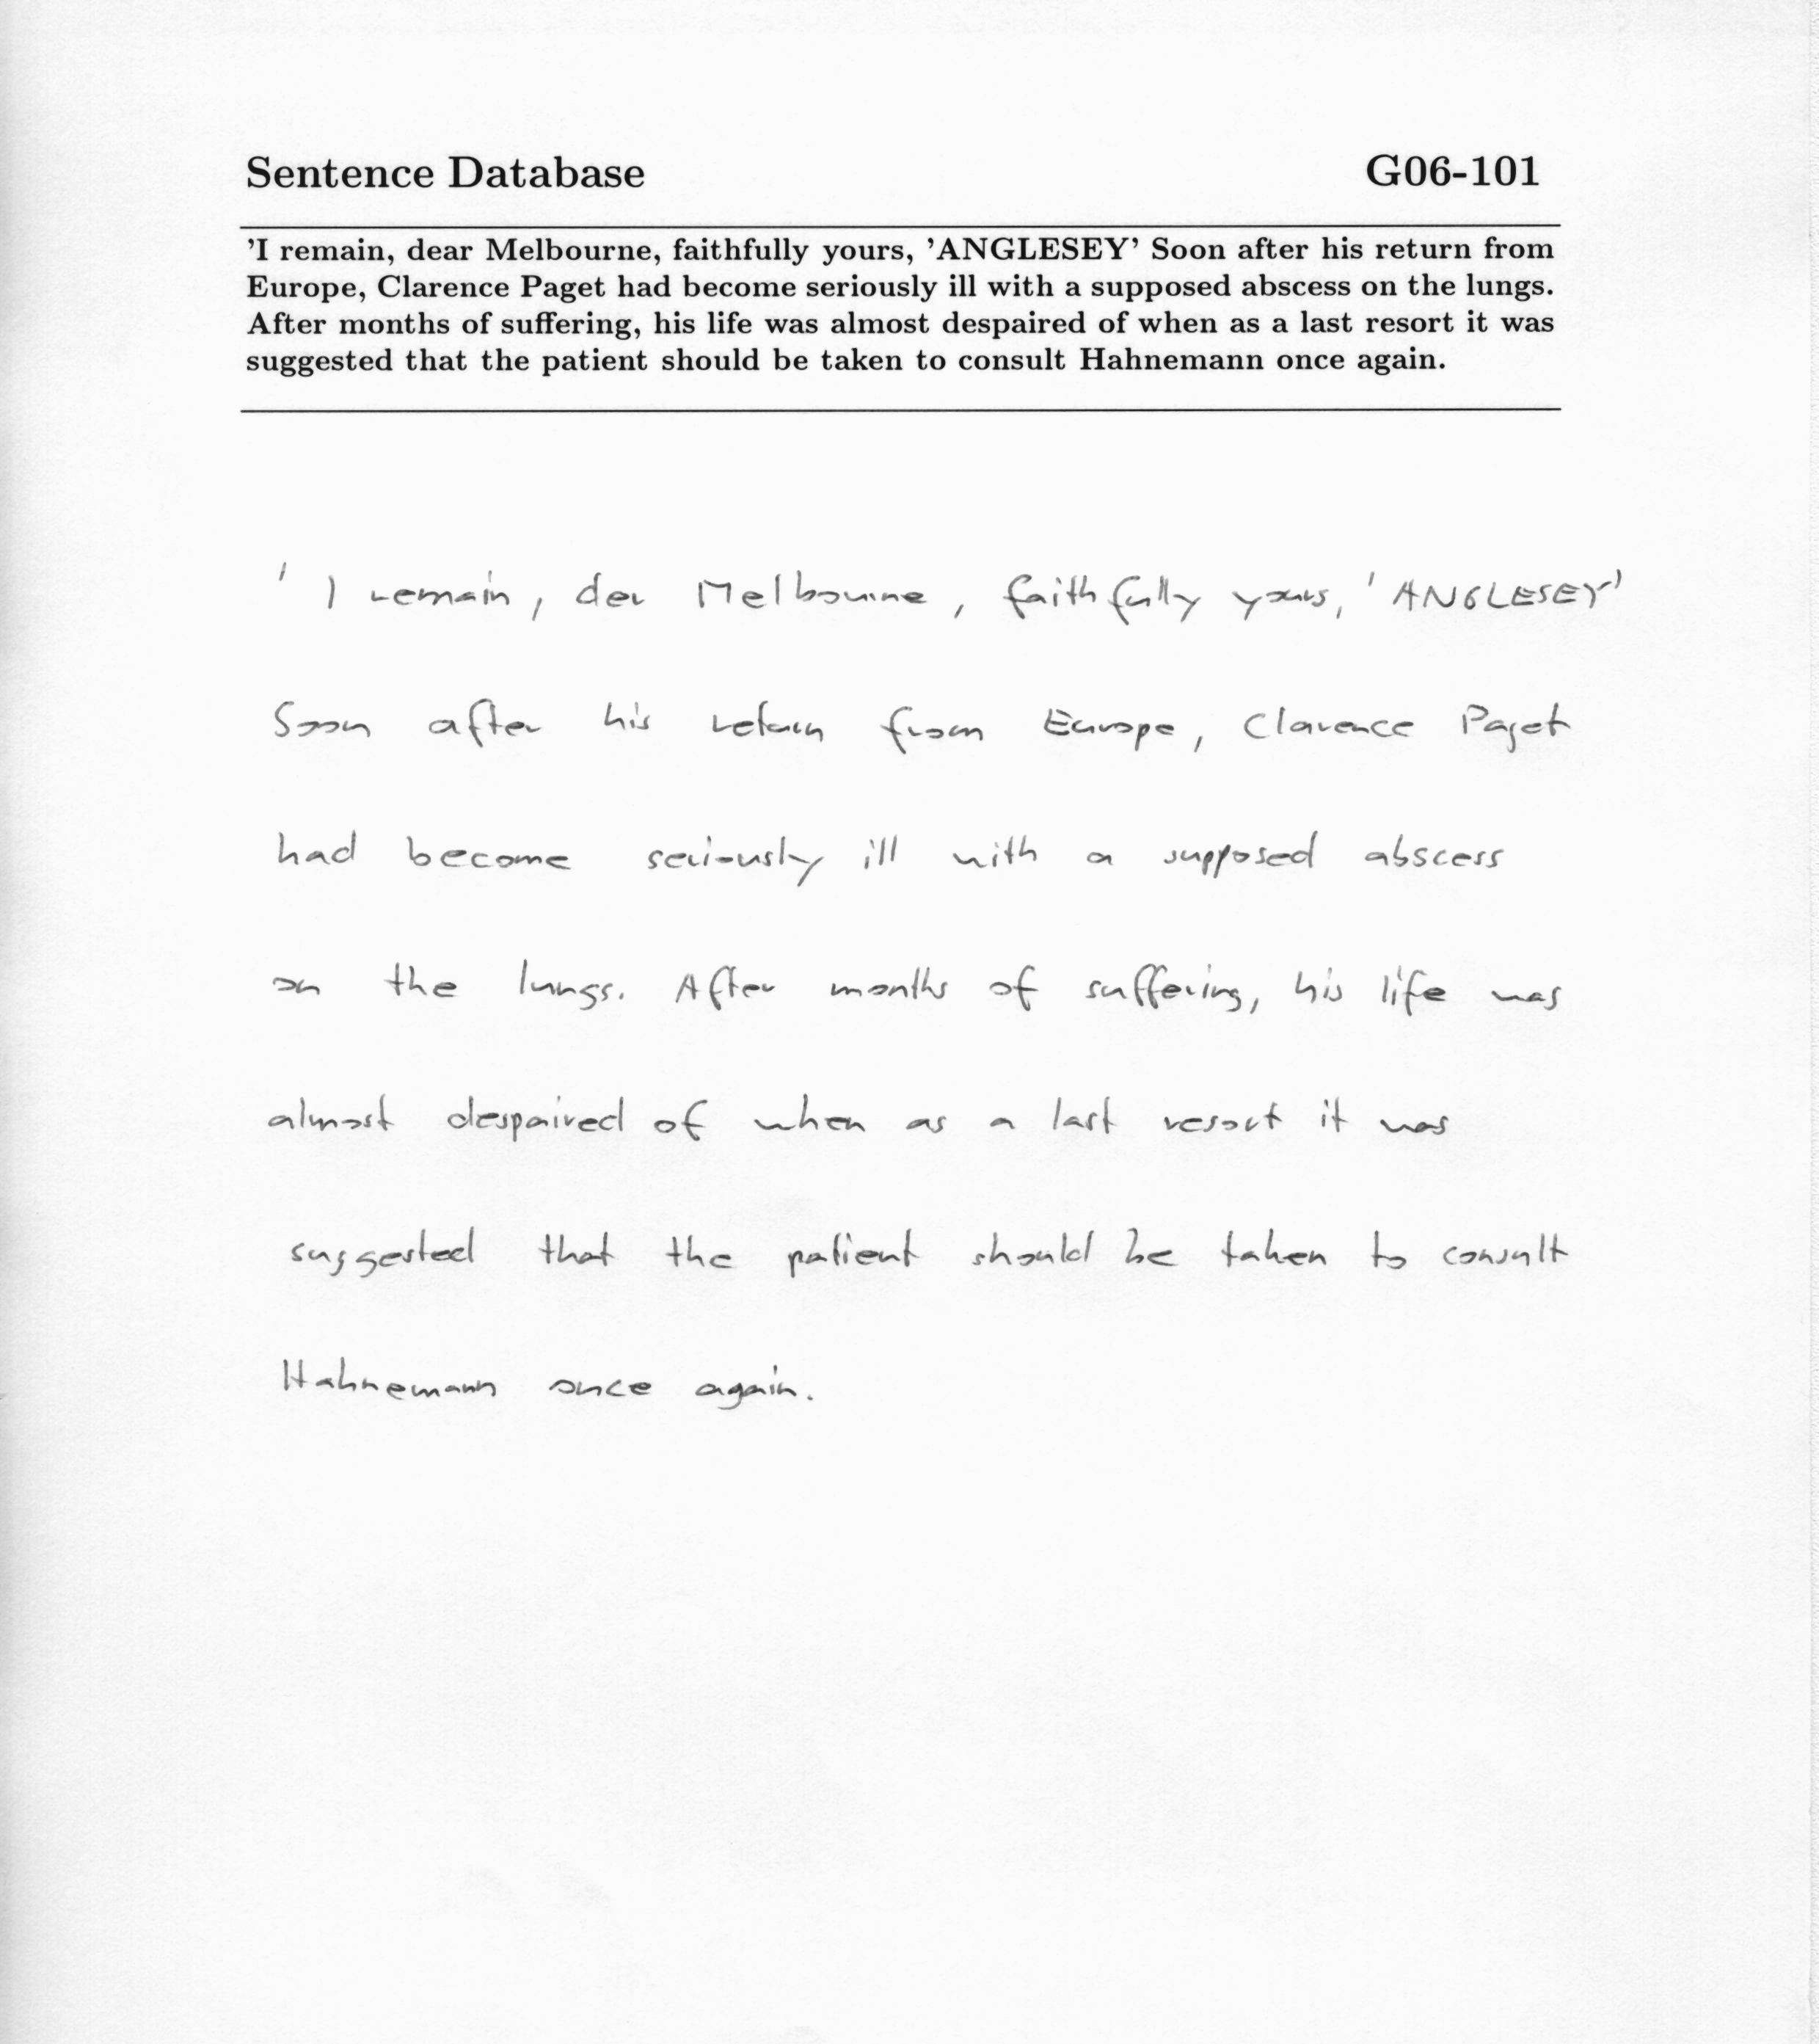 Sentence Database G06-101
'I remain, dear Melbourne, faithfully yours, 'ANGLESEY' Soon after his return from
Europe, Clarence Paget had become seriously ill with a supposed abscess on the lungs.
After months of suffering, his life was almost despaired of when as a last resort it was
suggested that the patient should be taken to consult Hahnemann once again.
' I remain, der Melbourne, faithfully yours, 'ANGLESEY'
Soon after his return from Europe, Clarence Paget
had become seriously ill with a supposed abscess
on the lungs. After months of suffering, his life was
almost despaired of when as a last resort it was
suggested that the patient should be taken to consult
Hahnemann once again.